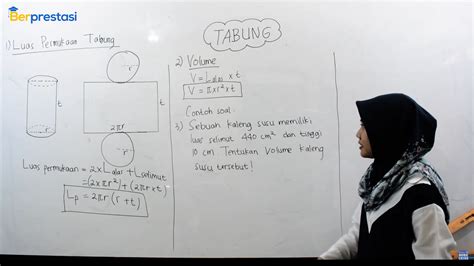 Berprestasi
TABUNG
1) Luas Permukaan Tabung
r
t
r
2πr
t
r
Luas permukaan = 2 x Lalas + Lselimut
= (2 x πr²) + (2πr x t)
Lp = 2πr (r + t)
2) Volume
V = Lalas x t
V = πxr² x t
Contoh soal:
3) Sebuah kaleng susu memiliki
luas selimut 440 cm² dan tinggi
10 cm Tentukan Volume kaleng
susu tersebut!